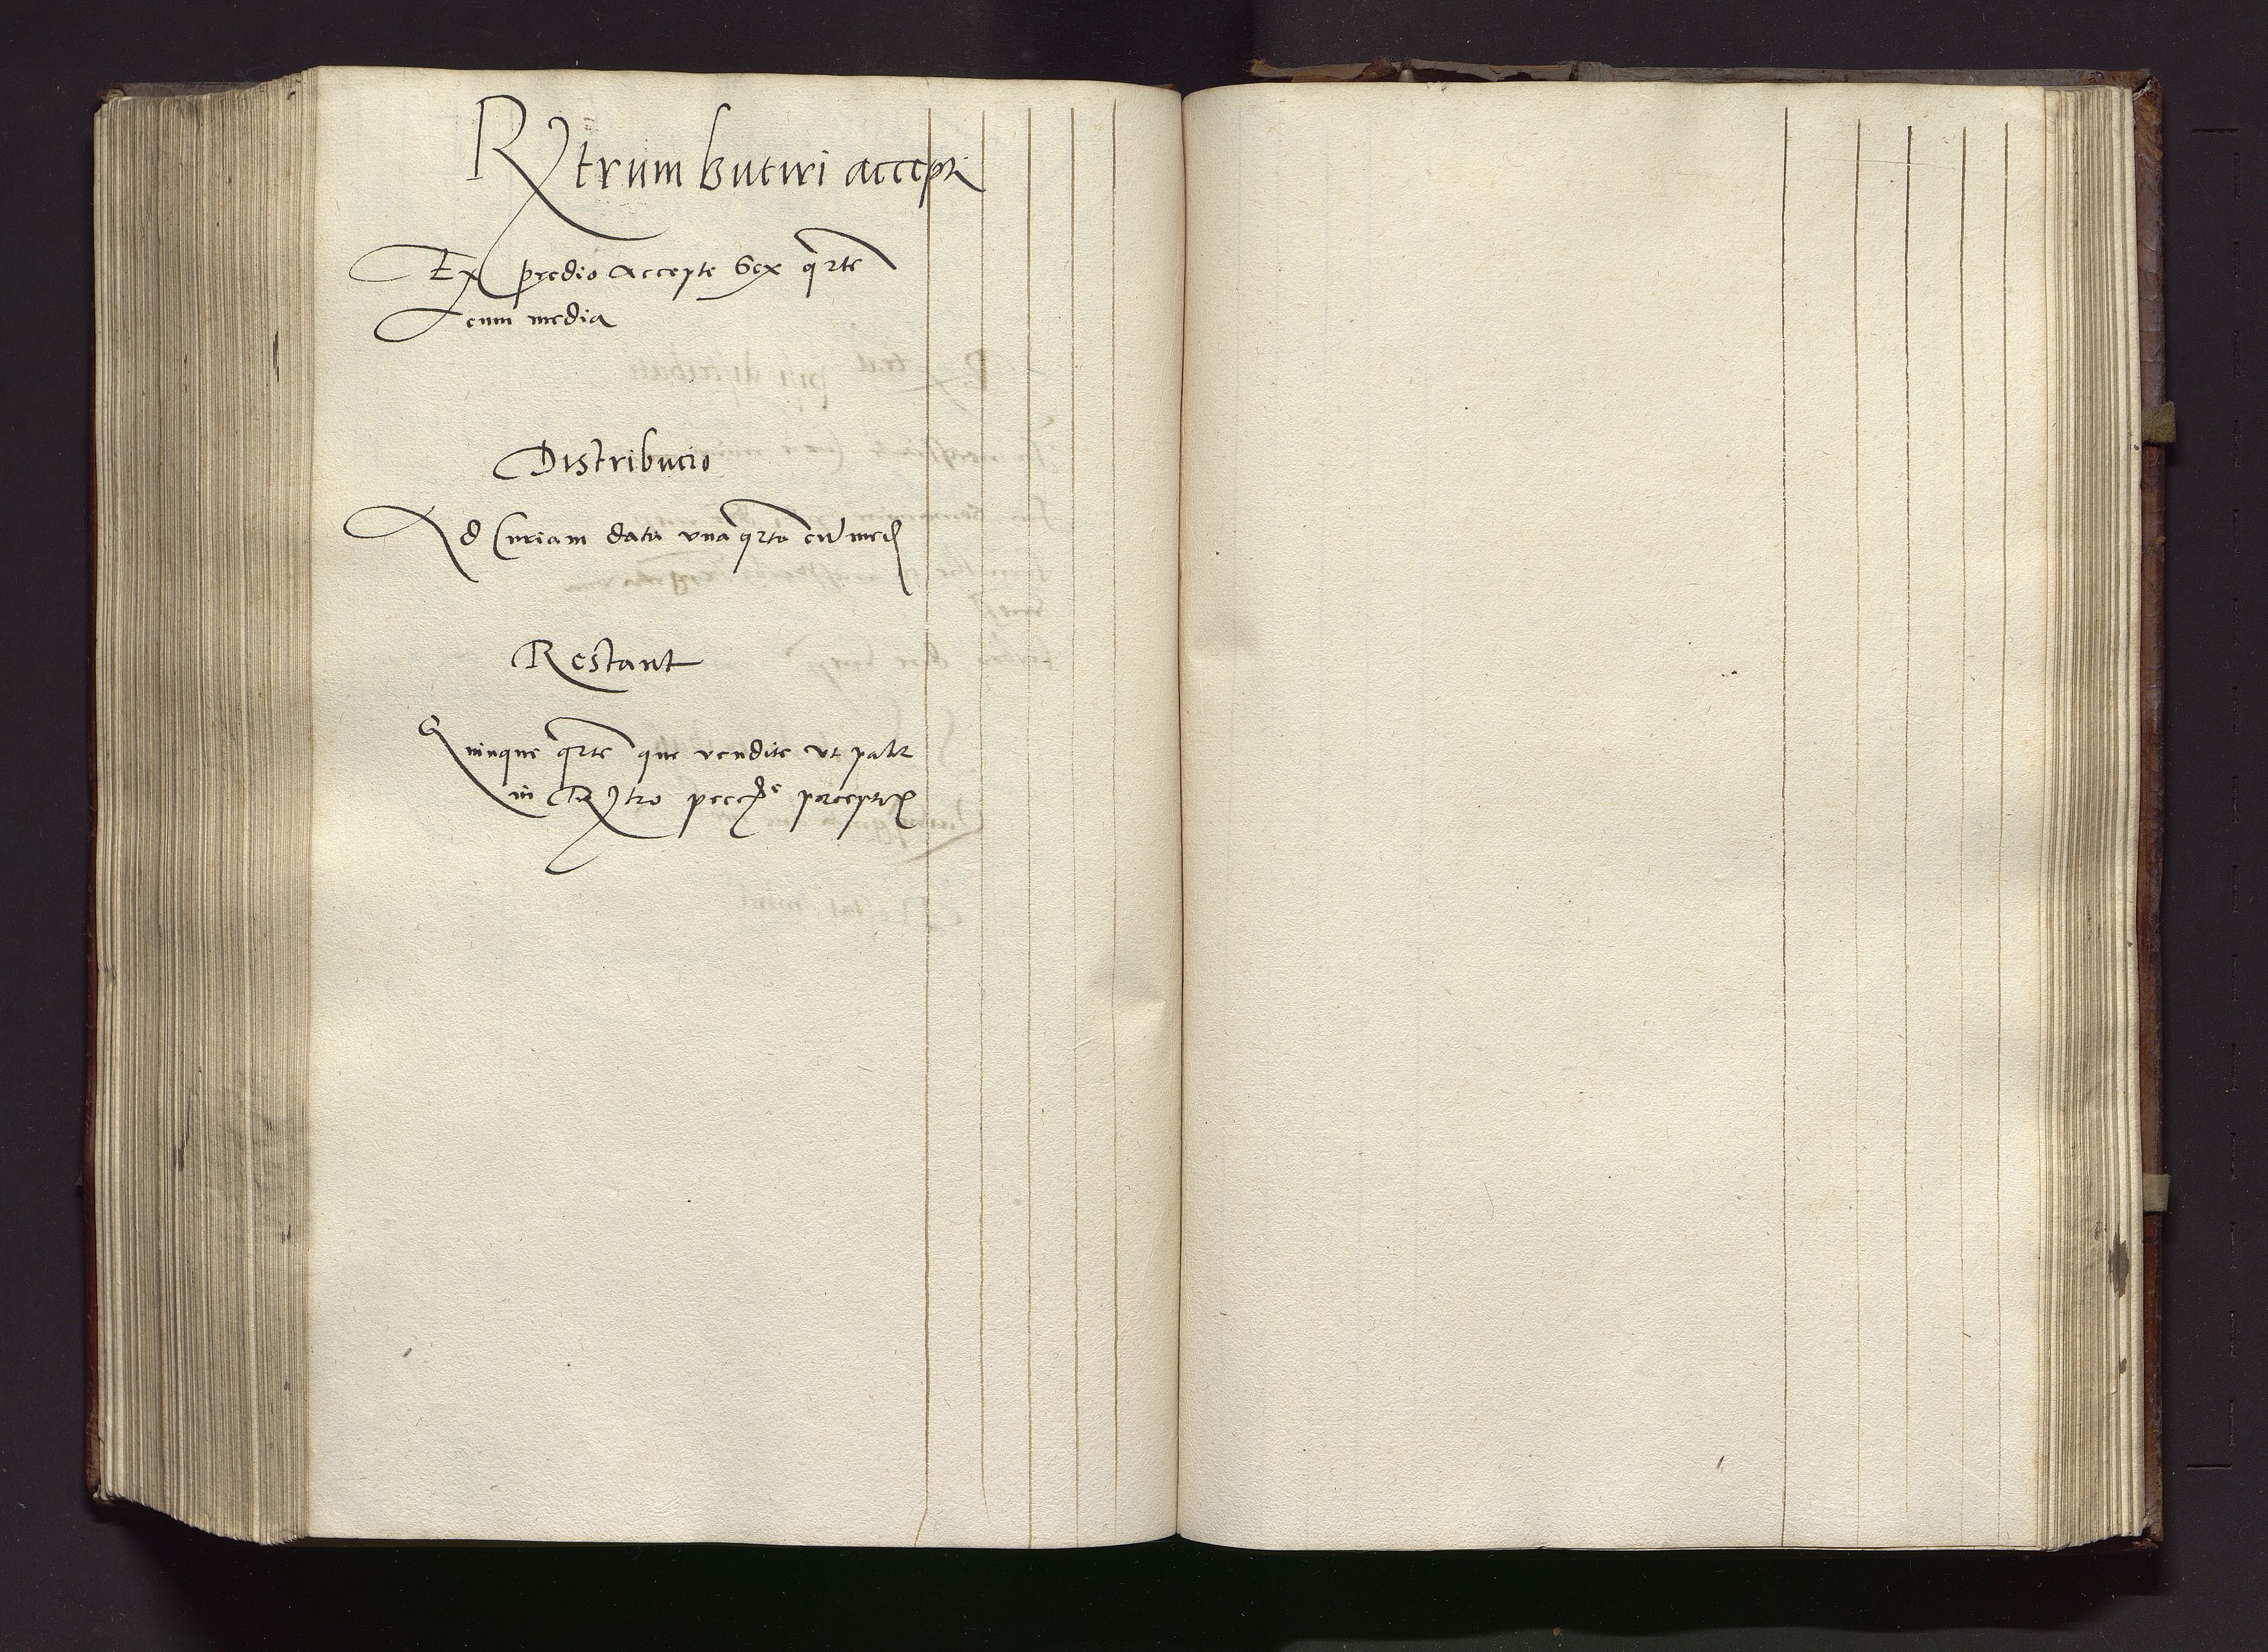 Rtrum butiri accepti
Ex predio accepte Sex qrte
cum media
Distribucio
Ad Curiam data vna qrta cu med
Restant
Quinque qrte que vendite vt patz
in Rtro pecce percepte